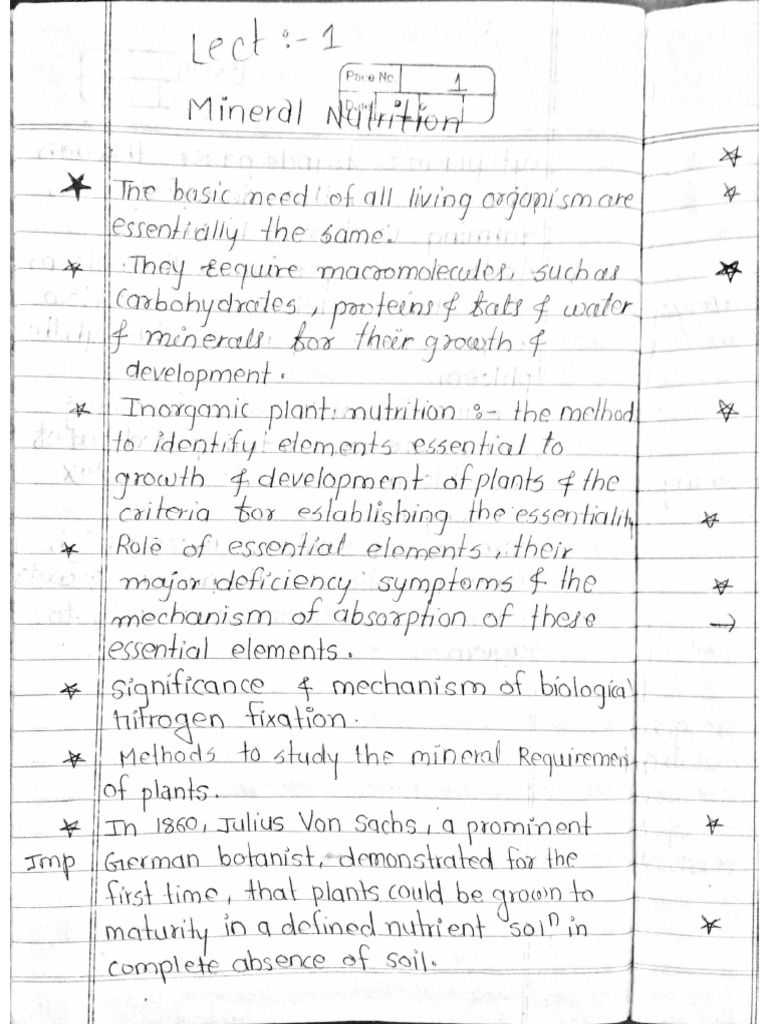 Lect :- 1
Page No 1
Mineral Nutrition
★ The basic need of all living organism are
essentially the same.
☆ They require macromolecules, such as
carbohydrates, proteins & fats & water
& minerals for their growth &
development.
☆ Inorganic plant nutrition :- the method
to identify elements essential to
growth & development of plants & the
criteria for establishing the essentiality
☆ Role of essential elements, their
major deficiency symptoms & the
mechanism of absorption of these
essential elements.
☆ Significance & mechanism of biological
nitrogen fixation.
☆ Methods to study the mineral Requirement
of plants.
☆ In 1860, Julius Von Sachs, a prominent
Imp German botanist, demonstrated for the
first time, that plants could be grown to
maturity in a defined nutrient solⁿ in
complete absence of soil.